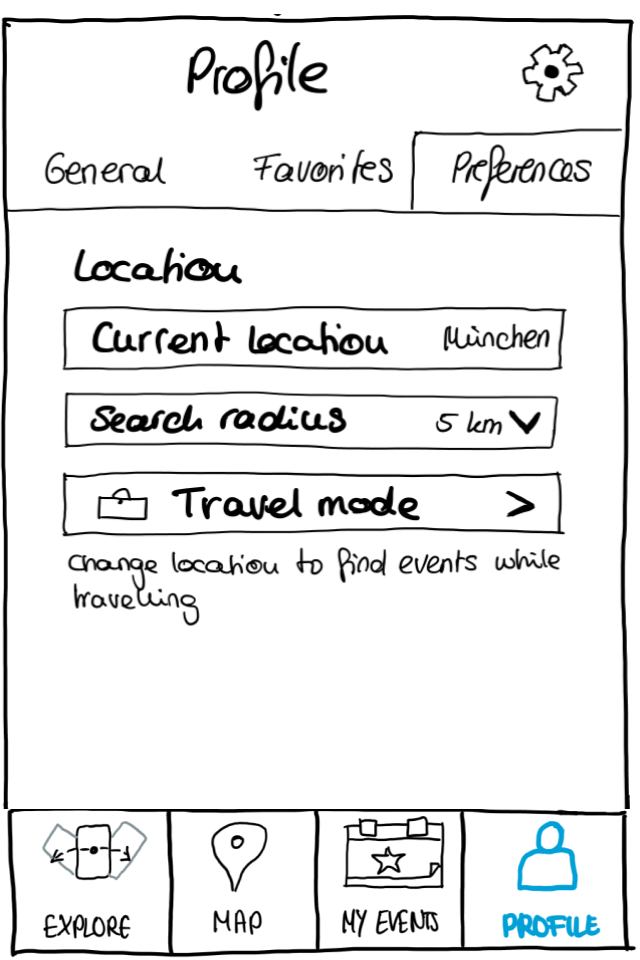 Profile
General Favorites Preferences
Location
Current location München
Search radius 5 km
Travel mode >
Change location to find events while
travelling
EXPLORE MAP MY EVENTS PROFILE